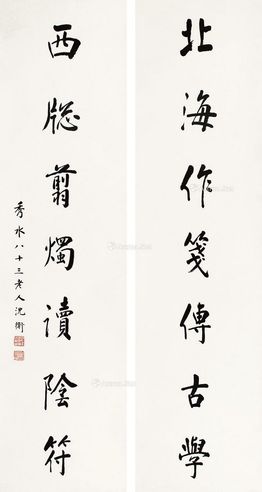 北海作箋傳古學
西牕翦燭讀陰符
秀水八十三老人沈衛